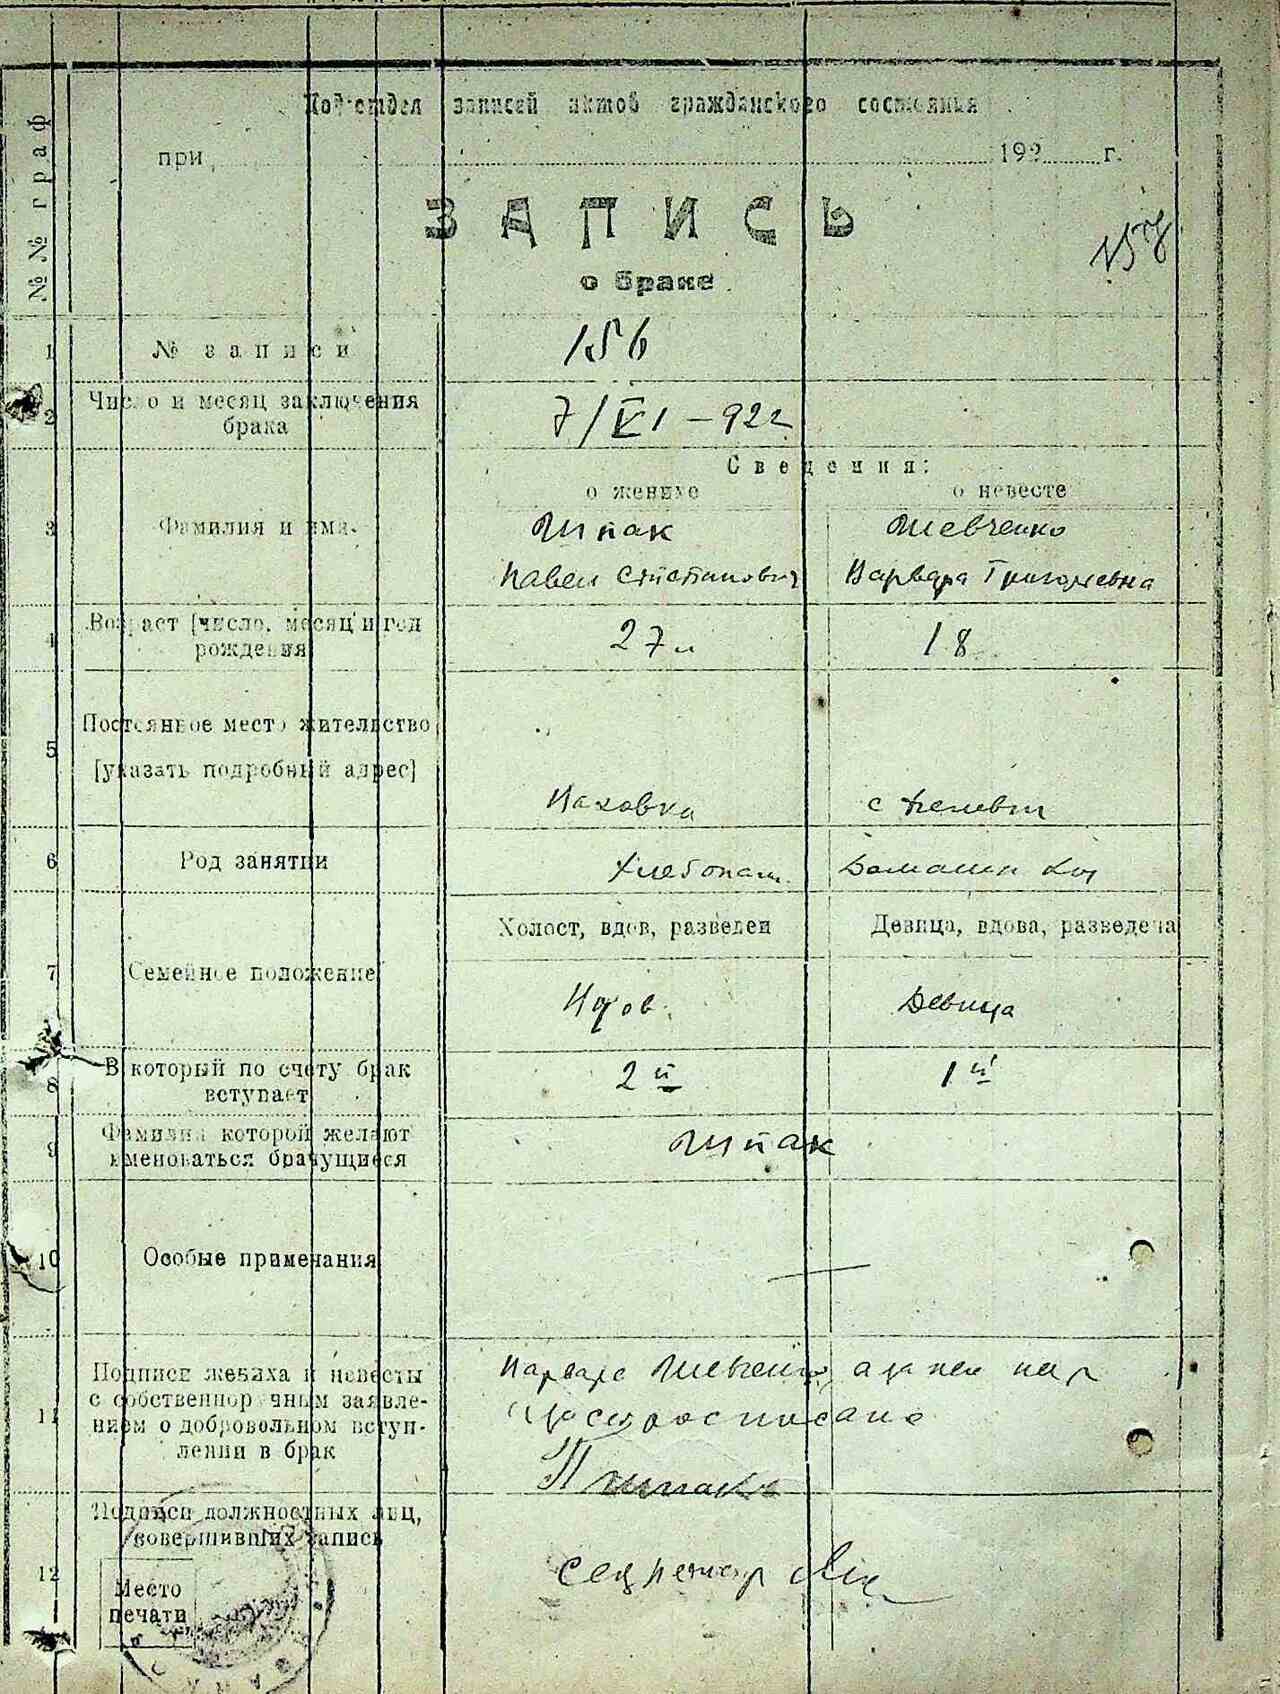 № № граф
Под'отдел записей актов гражданского состояния
при 192 г.
ЗАПИСЬ
о браке
1 № записи 156
2 Число и месяц заключения
брака 7/VI – 922
Сведения:
о женихе о невесте
3 Фамилия и имя Шпак Шевченко
Павел Степанович Варвара Григорьевна
4 Возраст [число, месяц и год
рождения 27 л 18
Постоянное место жительство
5
[указать подробный адрес]
Каховка с
6 Род занятий Хлебопаш. Домашн
Холост, вдов, разведен Девица, вдова, разведена
7 Семейное положение
Вдов. Девица
8 В который по счету брак
вступает 2й 1й
9 Фамилия которой желают
именоваться брачущиеся Шпак
10 Особые примечания
11 Подписи жениха и невесты
с собственноручным заявле-
нием о добровольном вступ-
лении в брак
Варвара Шевченко а за нея
росписано
П Шпакъ
12 Подписи должностных лиц,
совершивших запись
Секретар
Место
печати